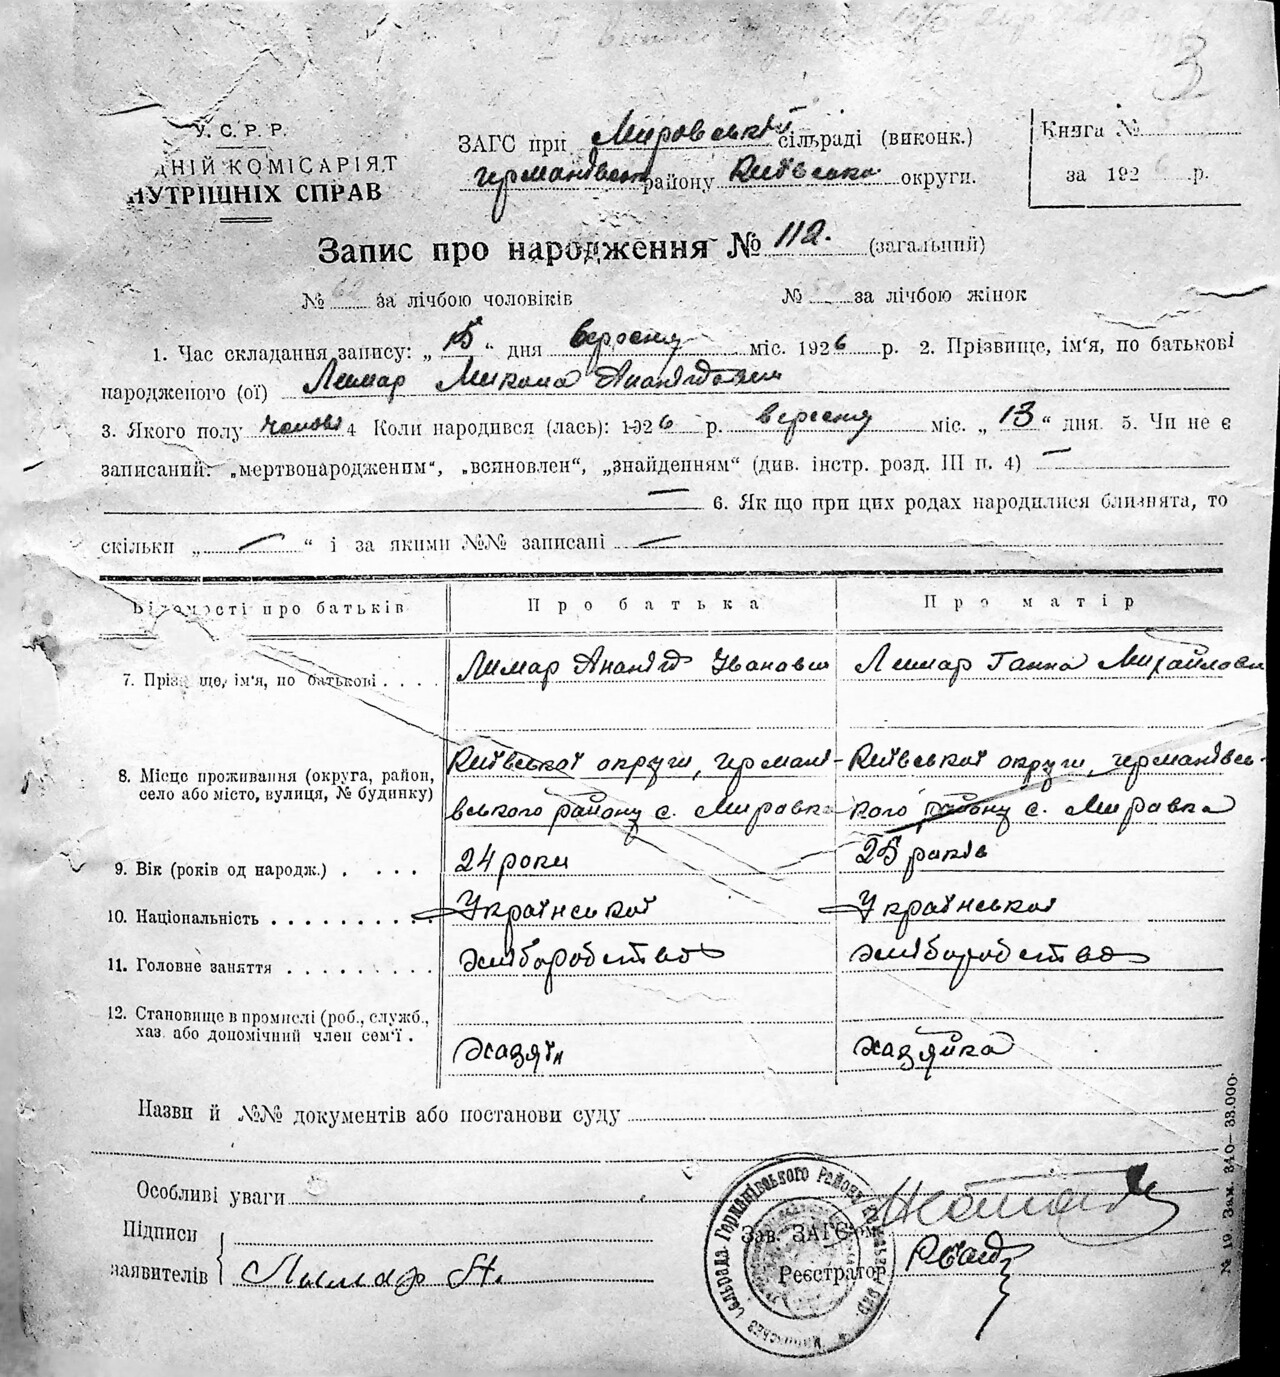 3
У. С. Р. Р.
ДНІЙ КОМІСАРІЯТ
НУТРІШНІХ СПРАВ
ЗАГС при Мировській сільраді (виконк.)
германівськ району Київська округи.
Книга №
за 1926 р.
Запис про народження № 112. (загальний)
№ 62 за лічбою чоловіків
№ 50 за лічбою жінок
1. Час складання запису: „ 15 “ дня вересня міс. 1926 р. 2. Прізвище, ім'я, по батькові
народженого (ої) Лимар Микола Ананійович
3. Якого полу чолові 4 Коли народився (лась): 1926 р. вересня міс. „ 13 “ дня. 5. Чи не є
записаний: „мертвонародженим“, „всиновлен“, „знайденням“ (див. інстр. розд. III п. 4) —
— 6. Як що при цих родах народилися близнята, то
скільки „ — “ і за якими №№ записані —
Відомості про батьків
Про батька
Про матір
7. Прізвище, ім'я, по батькові . . .
Лимар Ананій Іванович
Лимар Ганна Михайловн
8. Місце проживання (округа, район,
село або місто, вулиця, № будинку)
Київської округи, германі-
вського району с. Миравка
Київської округи, германівсь-
кого району с. Миравка
9. Вік (років од народж.) . . . .
24 роки
25 років
10. Національність . . . . . . . . .
Української
Української
11. Головне заняття . . . . . . . .
хліборобство
хліборобство
12. Становище в промислі (роб., служб.,
хаз. або допомічний член сем'ї .
хазяїн
хазяйка
Назви й №№ документів або постанови суду
Особливі уваги
Підписи
заявителів
Лимар А.
Зав. ЗАГС'ом
Реєстратор
Сільрада Германівського Району
№ 19. Зам. 340—33.000.